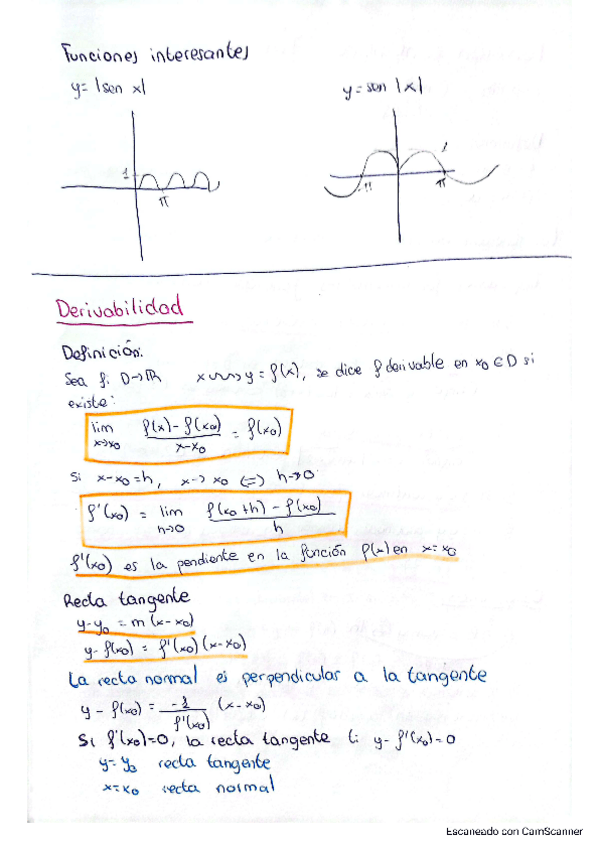 Funciones interesantes
y= |sen x|
y= sen |x|
1
π
-π
π
1
Derivabilidad
Definición:
Sea f: D→ℝ x⇝y=f(x), se dice f derivable en x₀∈D si
existe:
lim x→x₀ f(x)-f(x₀) / x-x₀ = f(x₀)
Si x-x₀=h, x→x₀ (=) h→0
f'(x₀) = lim h→0 f(x₀+h)-f(x₀) / h
f'(x₀) es la pendiente en la función f(x) en x=x₀
Recta tangente
y-y₀ = m (x-x₀)
y-f(x₀) = f'(x₀) (x-x₀)
La recta normal es perpendicular a la tangente
y - f(x₀) = -1 / f'(x₀) (x-x₀)
Si f'(x₀)=0, la recta tangente (: y-f'(x₀)=0
y=y₃ recta tangente
x=x₀ recta normal
Escaneado con CamScanner